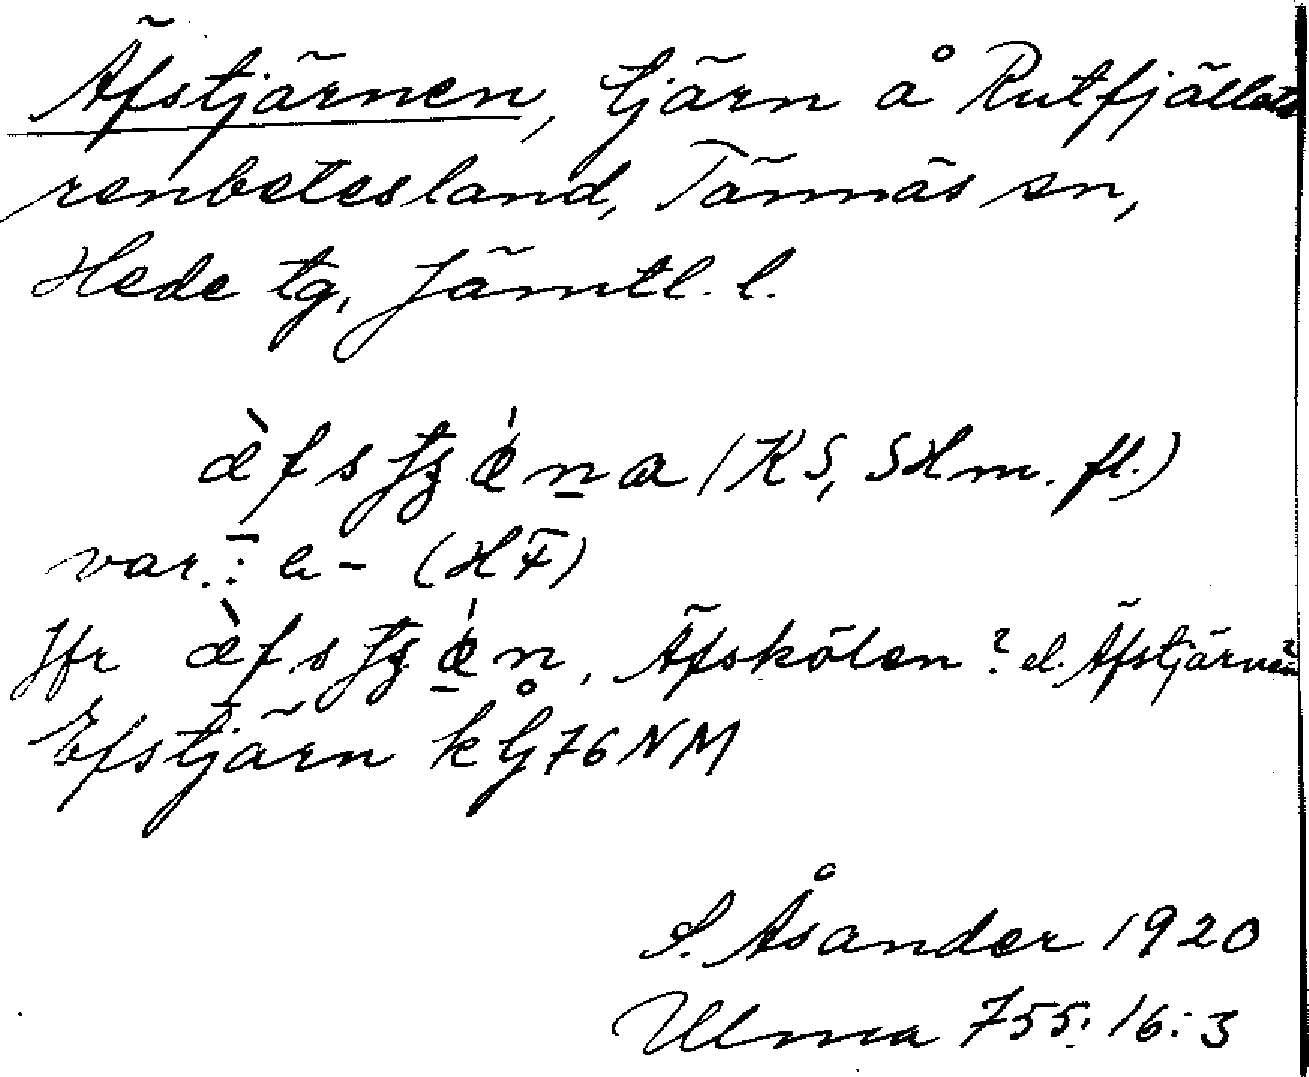 Äfstjärnen, tjärn å Rutfjällets
renbetesland, Tännäs sn,
Hede tg, Jämtl. l.
æ̀fstʒǽna (KS, SHm. fl.)
var.: e- (HF)
Jfr æ̀fstʒǽn, Äfskölen? el. Äfstjärnen?
Efstjärn k Gj 76 NM
S. Åsander 1920
Ulma 755:16:3